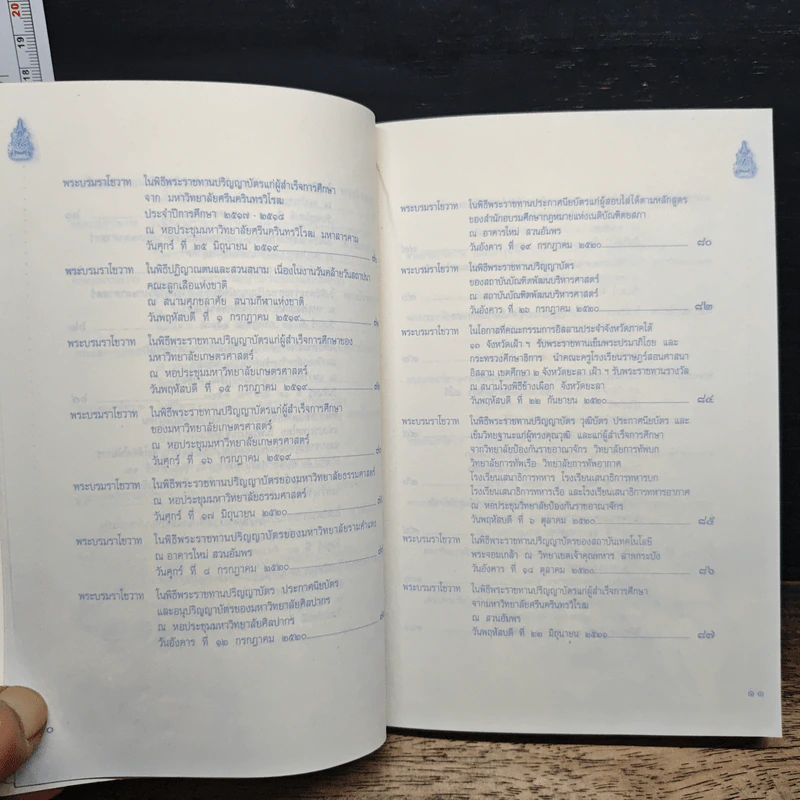 20
19
18
พระบรมราโชวาท ในพิธีพระราชทานปริญญาบัตรแก่ผู้สำเร็จการศึกษา
จาก มหาวิทยาลัยศรีนครินทรวิโรฒ
ประจำปีการศึกษา ๒๕๑๗ - ๒๕๑๘
ณ หอประชุมมหาวิทยาลัยศรีนครินทรวิโรฒ มหาสารคาม
วันศุกร์ ที่ ๒๕ มิถุนายน ๒๕๑๙
พระบรมราโชวาท ในพิธีปฏิญาณตนและสวนสนาม เนื่องในงานวันคล้ายวันสถาปนา
คณะลูกเสือแห่งชาติ
ณ สนามศุภชลาศัย สนามกีฬาแห่งชาติ
วันพฤหัสบดี ที่ ๑ กรกฎาคม ๒๕๑๙
พระบรมราโชวาท ในพิธีพระราชทานปริญญาบัตรแก่ผู้สำเร็จการศึกษาของ
มหาวิทยาลัยเกษตรศาสตร์
ณ หอประชุมมหาวิทยาลัยเกษตรศาสตร์
วันพฤหัสบดี ที่ ๑๕ กรกฎาคม ๒๕๑๙
พระบรมราโชวาท ในพิธีพระราชทานปริญญาบัตรแก่ผู้สำเร็จการศึกษา
ของมหาวิทยาลัยเกษตรศาสตร์
ณ หอประชุมมหาวิทยาลัยเกษตรศาสตร์
วันศุกร์ ที่ ๑๖ กรกฎาคม ๒๕๑๙
พระบรมราโชวาท ในพิธีพระราชทานปริญญาบัตรของมหาวิทยาลัยธรรมศาสตร์
ณ หอประชุมมหาวิทยาลัยธรรมศาสตร์
วันศุกร์ ที่ ๑๗ มิถุนายน ๒๕๒๐
พระบรมราโชวาท ในพิธีพระราชทานปริญญาบัตรของมหาวิทยาลัยรามคำแหง
ณ อาคารใหม่ สวนอัมพร
วันศุกร์ ที่ ๔ กรกฎาคม ๒๕๒๐
พระบรมราโชวาท ในพิธีพระราชทานปริญญาบัตร ประกาศนียบัตร
และอนุปริญญาบัตรของมหาวิทยาลัยศิลปากร
ณ หอประชุมมหาวิทยาลัยศิลปากร
วันอังคาร ที่ ๑๒ กรกฎาคม ๒๕๒๐
๐
พระบรมราโชวาท ในพิธีพระราชทานประกาศนียบัตรแก่ผู้สอบไล่ได้ตามหลักสูตร
ของสำนักอบรมศึกษากฎหมายแห่งเนติบัณฑิตยสภา
ณ อาคารใหม่ สวนอัมพร
วันอังคาร ที่ ๑๙ กรกฎาคม ๒๕๒๐ ๘๐
พระบรมราโชวาท ในพิธีพระราชทานปริญญาบัตร
ของสถาบันบัณฑิตพัฒนบริหารศาสตร์
ณ สถาบันบัณฑิตพัฒนบริหารศาสตร์
วันอังคาร ที่ ๒๖ กรกฎาคม ๒๕๒๐ ๘๒
พระบรมราโชวาท ในโอกาสที่คณะกรรมการอิสลามประจำจังหวัดภาคใต้
๑๓ จังหวัดเฝ้า ฯ รับพระราชทานเข็มพระปรมาภิไธย และ
กระทรวงศึกษาธิการ นำคณะครูโรงเรียนราษฎร์สอนศาสนา
อิสลาม เขตศึกษา ๒ จังหวัดยะลา เฝ้า ฯ รับพระราชทานรางวัล
ณ สนามโรงพิธีช้างเผือก จังหวัดยะลา
วันพฤหัสบดี ที่ ๒๒ กันยายน ๒๕๒๐ ๘๔
พระบรมราโชวาท ในพิธีพระราชทานปริญญาบัตร วุฒิบัตร ประกาศนียบัตร และ
เข็มวิทยฐานะแก่ผู้ทรงคุณวุฒิ และแก่ผู้สำเร็จการศึกษา
จากวิทยาลัยป้องกันราชอาณาจักร วิทยาลัยการทัพบก
วิทยาลัยการทัพเรือ วิทยาลัยการทัพอากาศ
โรงเรียนเสนาธิการทหาร โรงเรียนเสนาธิการทหารบก
โรงเรียนเสนาธิการทหารเรือ และโรงเรียนเสนาธิการทหารอากาศ
ณ หอประชุมวิทยาลัยป้องกันราชอาณาจักร
วันพฤหัสบดี ที่ ๖ ตุลาคม ๒๕๒๐ ๘๕
พระบรมราโชวาท ในพิธีพระราชทานปริญญาบัตรของสถาบันเทคโนโลยี
พระจอมเกล้า ณ วิทยาเขตเจ้าคุณทหาร ลาดกระบัง
วันอังคาร ที่ ๑๘ ตุลาคม ๒๕๒๐ ๘๖
พระบรมราโชวาท ในพิธีพระราชทานปริญญาบัตรแก่ผู้สำเร็จการศึกษา
จากมหาวิทยาลัยศรีนครินทรวิโรฒ
ณ สวนอัมพร
วันพฤหัสบดี ที่ ๒๒ มิถุนายน ๒๕๒๑ ๘๗
๑๑